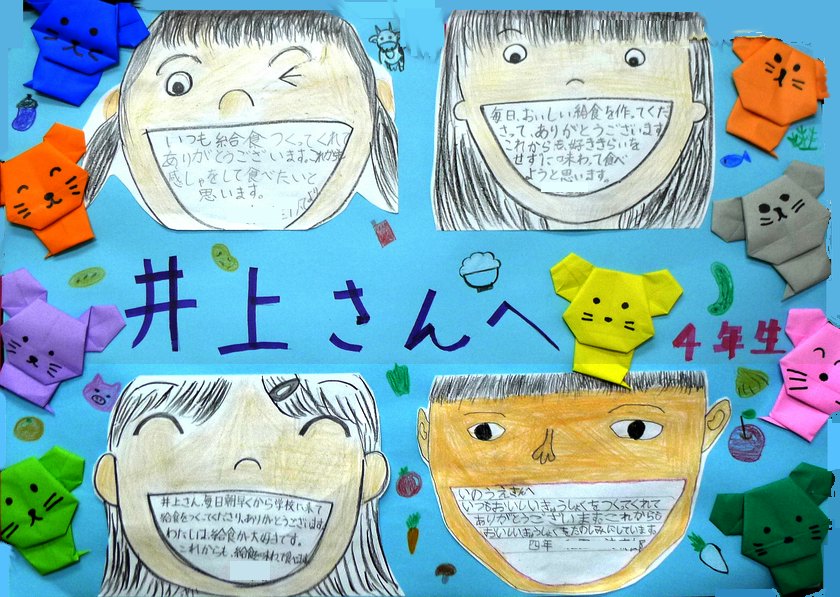 いつも給食つくってくれて
ありがとうございます。これからも
感しゃをして食べたいと
思います。
毎日、おいしい給食を作ってくだ
さって、ありがとうございます。
これからも、好ききらいを
せずに味わって食べ
ようと思います。
井上さんへ
4年生
井上さん、毎日朝早くから学校に来て
給食をつくってくださり、ありがとうございます。
わたしは、給食が大好きです。
これからも、給食を味わって食べます。
いのうえさんへ
いつもおいしいきゅうしょくをつくってくれて
ありがとうございます。これからも
おいしいきゅうしょくをたのしみにしています。
四年